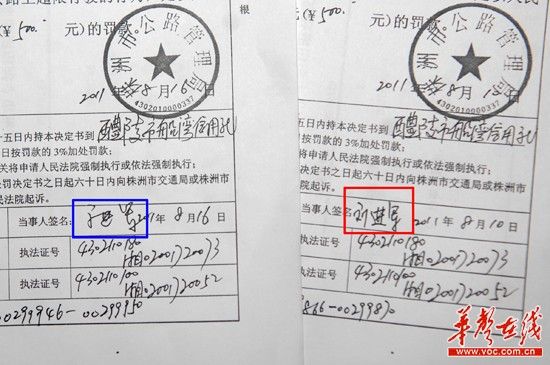 根
(¥ 500.
元)的罚款
株洲市公路管理局
4302010000337
2011年8月16日
十五日内持本决定书到 醴陵市船湾信用社
日按罚款的3%加处罚款;
关将申请人民法院强制执行或依法强制执行;
处罚决定书之日起六十日内向株洲市交通局或株洲市
民法院起诉。
当事人签名:
2011年 8月16日
执法证号
4302110180
湘02001720073
执法证号
4302110100
湘02001720052
00299946-00299950
(¥ 500.
元)的罚款
株洲市公路管理局
4302010000337
2011年8月10日
五日内持本决定书到 醴陵市船湾信用社
日按罚款的3%加处罚款;
将申请人民法院强制执行或依法强制执行;
决定书之日起六十日内向株洲市交通局或株洲市
法院起诉。
当事人签名: 刘进军 2011年 8月10日
执法证号
4302110180
湘02001720073
执法证号
4302110100
湘02001720052
866-00299870
华声在线
www.voc.com.cn